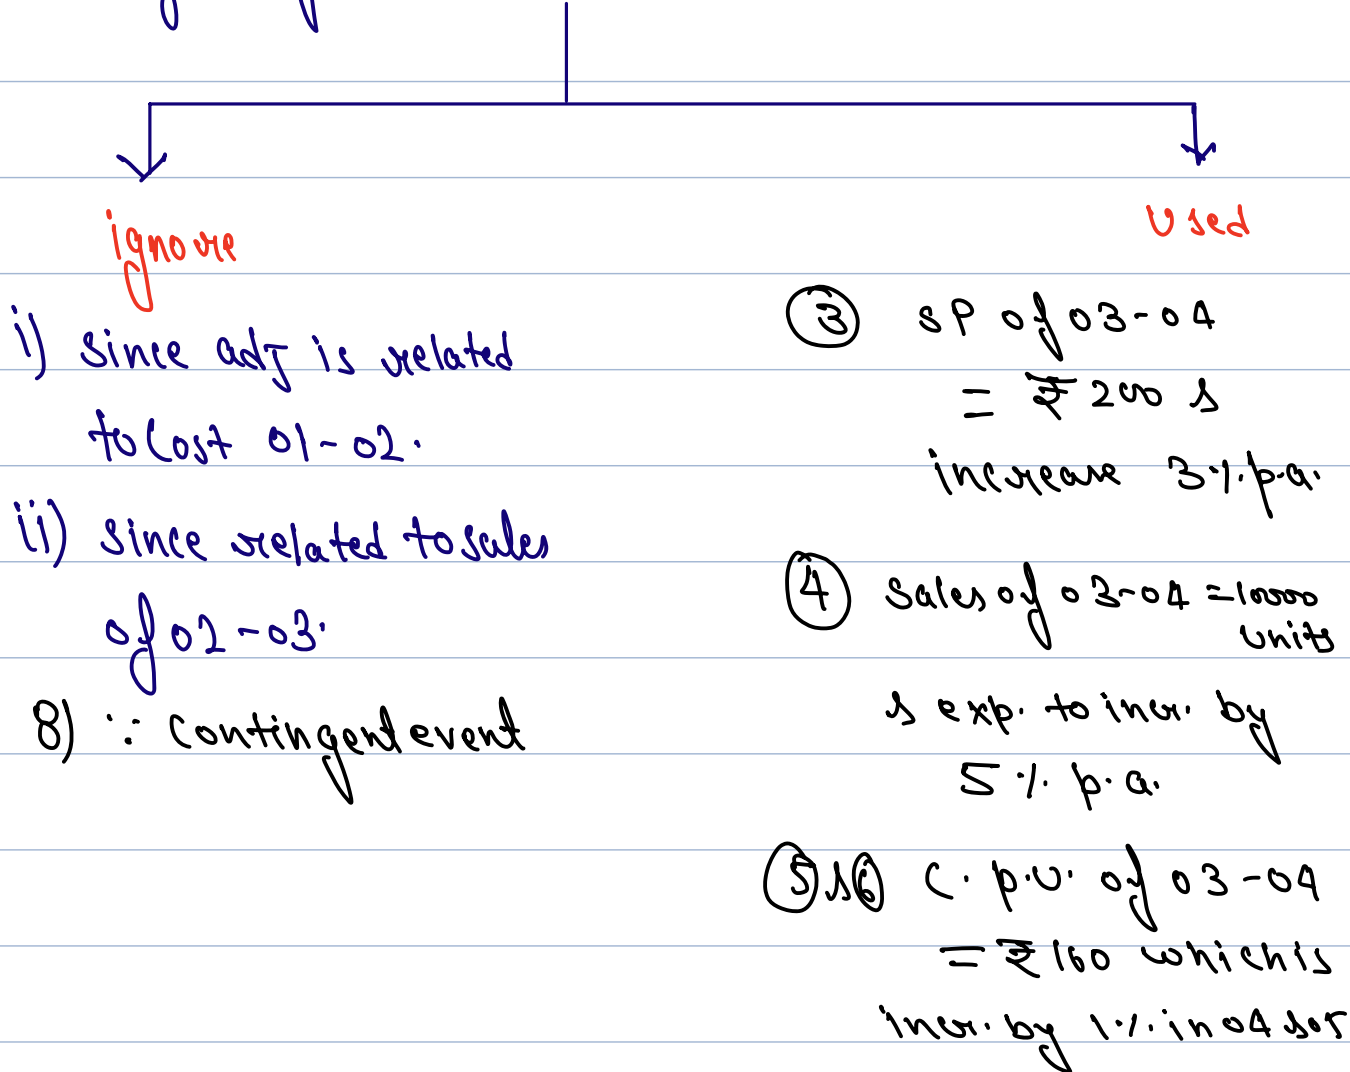 ignore
i) since adj is related
to Cost 01-02.
ii) since related to sales
of 02-03.
8) ∵ contingent event
Used
③ SP of 03-04
= ₹ 200 &
increase 3% p.a.
④ Sales of 03-04 = 10000
units
& exp. to incr. by
5% p.a.
⑤ & ⑥ C. p.u. of 03-04
= ₹ 160 which is
incr. by 1% in 04 & 05